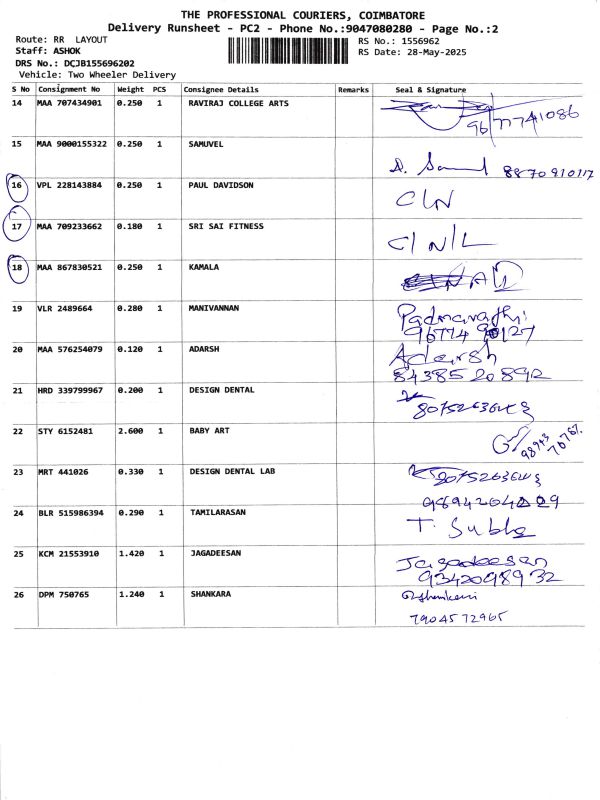 THE PROFESSIONAL COURIERS, COIMBATORE
Delivery Runsheet - PC2 - Phone No.:9047080280 - Page No.:2
Route: RR LAYOUT
RS No.: 1556962
Staff: ASHOK
RS Date: 28-May-2025
DRS No.: DCJB155696202
Vehicle: Two Wheeler Delivery
S No Consignment No Weight PCS Consignee Details Remarks Seal & Signature
14 MAA 707434901 0.250 1 RAVIRAJ COLLEGE ARTS
96/7741086
15 MAA 9000155322 0.250 1 SAMUVEL
8870910117
16 VPL 228143884 0.250 1 PAUL DAVIDSON
C/N
17 MAA 709233662 0.180 1 SRI SAI FITNESS
C/N/L
18 MAA 867830521 0.250 1 KAMALA
19 VLR 2489664 0.280 1 MANIVANNAN
20 MAA 576254079 0.120 1 ADARSH
Adarsh
84385 20892
21 HRD 339799967 0.200 1 DESIGN DENTAL
22 STY 6152481 2.600 1 BABY ART
98943
70767
23 MRT 441026 0.330 1 DESIGN DENTAL LAB
24 BLR 515986394 0.290 1 TAMILARASAN
T. Subha
25 KCM 21553910 1.420 1 JAGADEESAN
Jagadeesan
9342098932
26 DPM 750765 1.240 1 SHANKARA
7904572965